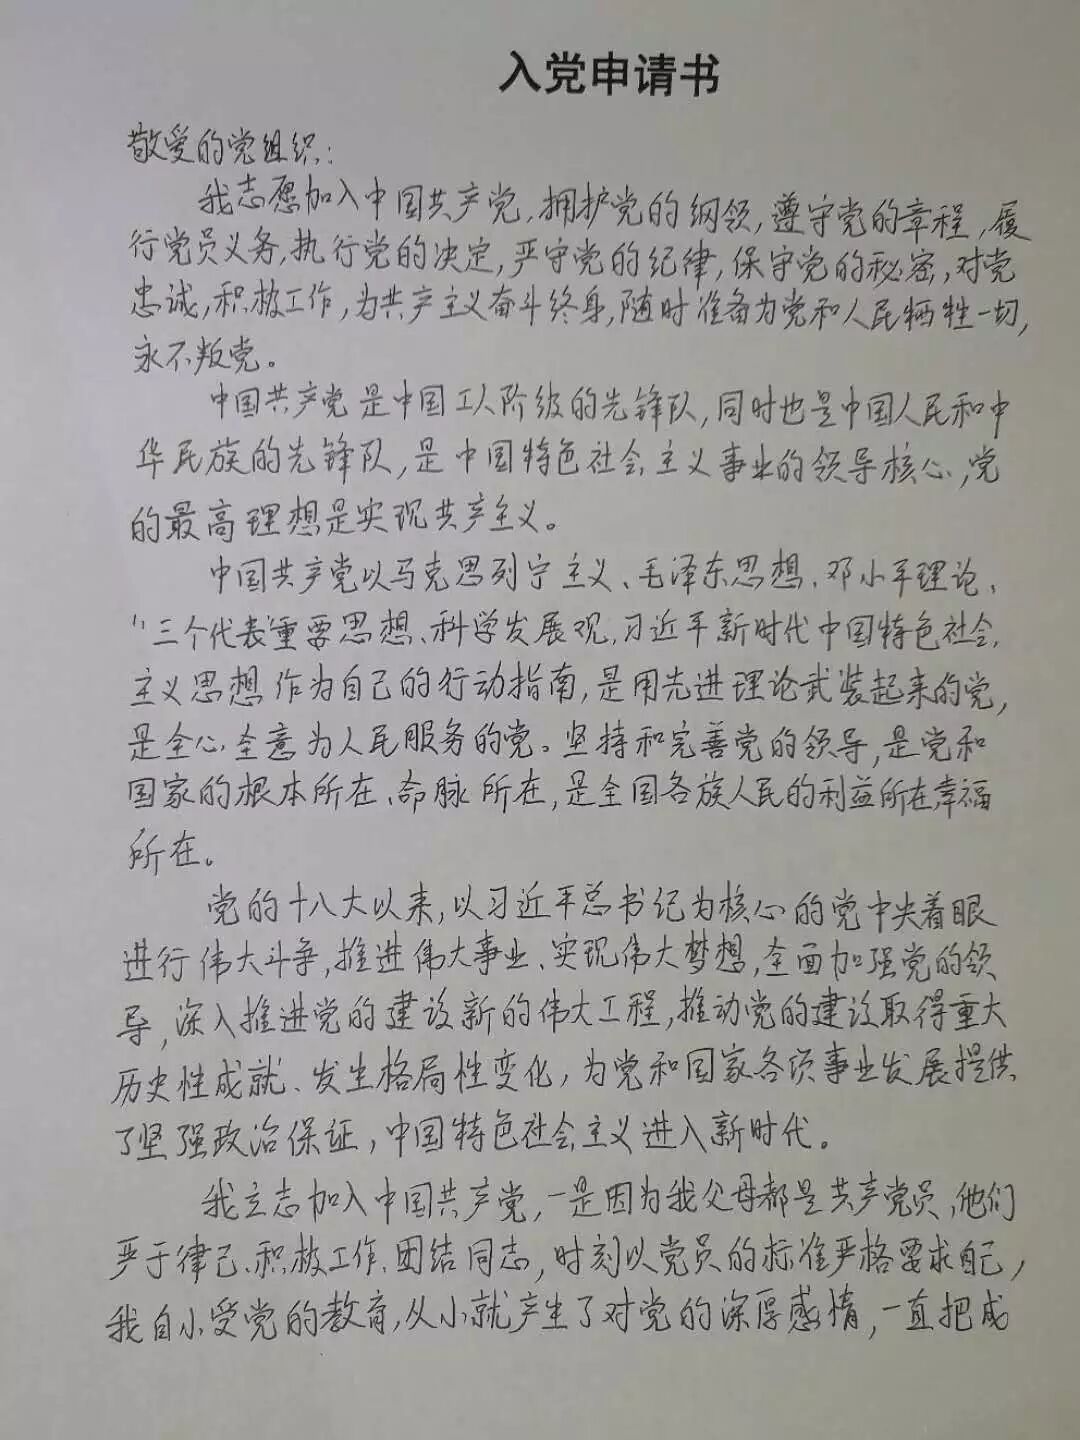 入党申请书
敬爱的党组织：
我志愿加入中国共产党，拥护党的纲领，遵守党的章程，履
行党员义务，执行党的决定，严守党的纪律，保守党的秘密，对党
忠诚，积极工作，为共产主义奋斗终身，随时准备为党和人民牺牲一切，
永不叛党。
中国共产党是中国工人阶级的先锋队，同时也是中国人民和中
华民族的先锋队，是中国特色社会主义事业的领导核心，党
的最高理想是实现共产主义。
中国共产党以马克思列宁主义、毛泽东思想、邓小平理论、
“三个代表”重要思想、科学发展观，习近平新时代中国特色社会
主义思想作为自己的行动指南，是用先进理论武装起来的党，
是全心全意为人民服务的党。坚持和完善党的领导，是党和
国家的根本所在、命脉所在，是全国各族人民的利益所在幸福
所在。
党的十八大以来，以习近平总书记为核心的党中央着眼
进行伟大斗争，推进伟大事业、实现伟大梦想，全面加强党的领
导，深入推进党的建设新的伟大工程，推动党的建设取得重大
历史性成就、发生格局性变化，为党和国家各项事业发展提供
了坚强政治保证，中国特色社会主义进入新时代。
我立志加入中国共产党，一是因为我父母都是共产党员，他们
严于律己、积极工作、团结同志，时刻以党员的标准严格要求自己，
我自小受党的教育，从小就产生了对党的深厚感情，一直把成